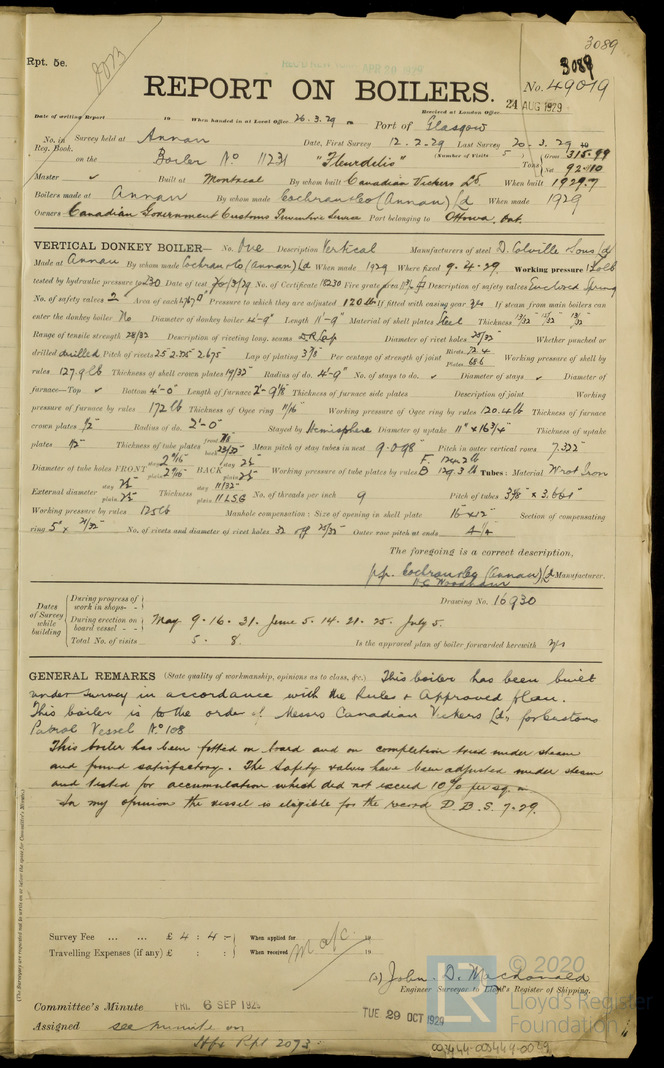 3089
Rpt. 5e.
3089
REPORT ON BOILERS.
No. 49079
24 AUG 1929
Date of writing Report 19 When handed in at Local Office 26.3.29 Port of Glasgow
Received at London Office
No. in Reg. Book. Survey held at Annan Date, First Survey 12.2.29 Last Survey 20.3.29
on the Boiler No 11231 "Fleurdelis" (Number of Visits 5) Tons Gross 315.99 Net 92.10
Master ✓ Built at Montreal By whom built Canadian Vickers Ld. When built 1929.7
Boilers made at Annan By whom made Cochran & Co (Annan) Ld When made 1929
Owners Canadian Government Customs Preventive Service Port belonging to Ottawa, Ont.
VERTICAL DONKEY BOILER— No. One Description Vertical Manufacturers of steel D. Colville & Sons Ld
Made at Annan By whom made Cochran & Co (Annan) Ld When made 1929 Where fixed 9.4.29. Working pressure 120 lb
tested by hydraulic pressure to 230 Date of test 20/3/29 No. of Certificate 18230 Fire grate area Description of safety valves Enclosed Spring
No. of safety valves 2 Area of each Pressure to which they are adjusted 120 lb If fitted with easing gear yes If steam from main boilers can
enter the donkey boiler No Diameter of donkey boiler 4'-9" Length 11'-9" Material of shell plates Steel Thickness
Range of tensile strength 28/32 Description of riveting long. seams D.R. Lap Diameter of rivet holes 25/32 Whether punched or
drilled drilled Pitch of rivets 2.675 Lap of plating 3 7/8 Per centage of strength of joint Rivets 72.4 Plates 68.6 Working pressure of shell by
rules 127.9 lb Thickness of shell crown plates 19/32" Radius of do. 4'-9" No. of stays to do. ✓ Diameter of stays ✓ Diameter of
furnace—Top ✓ Bottom 4'-0" Length of furnace 2'-9 1/8 Thickness of furnace side plates Description of joint Working
pressure of furnace by rules 172 lb Thickness of Ogee ring 11/16" Working pressure of Ogee ring by rules 120.4 lb Thickness of furnace
crown plates 1/2" Radius of do. 2'-0" Stayed by Hemisphere Diameter of uptake 11" x 16 3/4" Thickness of uptake
plates 1/2" Thickness of tube plates front 7/8 back 23/32 Mean pitch of stay tubes in nest 9.098" Pitch in outer vertical rows 7.322"
Diameter of tube holes FRONT stay plain BACK stay plain Working pressure of tube plates by rules B 129.3 lb Tubes: Material Wrot Iron
External diameter stay 2 1/2 plain 2 1/2 Thickness stay 11/32" plain 11 LSG No. of threads per inch 9 Pitch of tubes
Working pressure by rules 125 lb Manhole compensation: Size of opening in shell plate 16" x 12" Section of compensating
ring 5" x 21/32" No. of rivets and diameter of rivet holes 32 off 25/32" Outer row pitch at ends 4 1/4
The foregoing is a correct description,
p.p. Cochran & Co (Annan) Ld Manufacturer.
Drawing No. 16930
Dates of Survey while building
During progress of work in shops - -
During erection on board vessel - - May 9.16.31. June 5.14.21.25. July 5.
Total No. of visits 5. 8. Is the approved plan of boiler forwarded herewith yes
GENERAL REMARKS (State quality of workmanship, opinions as to class, &c.) This boiler has been built
under survey in accordance with the Rules & Approved plan.
This boiler is to the order of Messrs Canadian Vickers Ld, for Customs
Patrol Vessel No 108
This boiler has been fitted on board and on completion tried under steam
and found satisfactory. The safety valves have been adjusted under steam
and tested for accumulation which did not exceed 10% per sq. in
In my opinion the vessel is eligible for the record D.B.S. 7-29.
(The Surveyors are requested not to write on or below the space for Committee's Minute.)
Survey Fee ... ... £ 4 : 4 : - When applied for 19
Travelling Expenses (if any) £ : : When received 19
(s) John. D. Macdonald
Engineer Surveyor to Lloyd's Register of Shipping.
Committee's Minute FRI. 6 SEP 1929 TUE 29 OCT 1929
Assigned see minute on
Hfx Rpt 2073
© 2020
Lloyd's Register
Foundation
003444-003444-0029